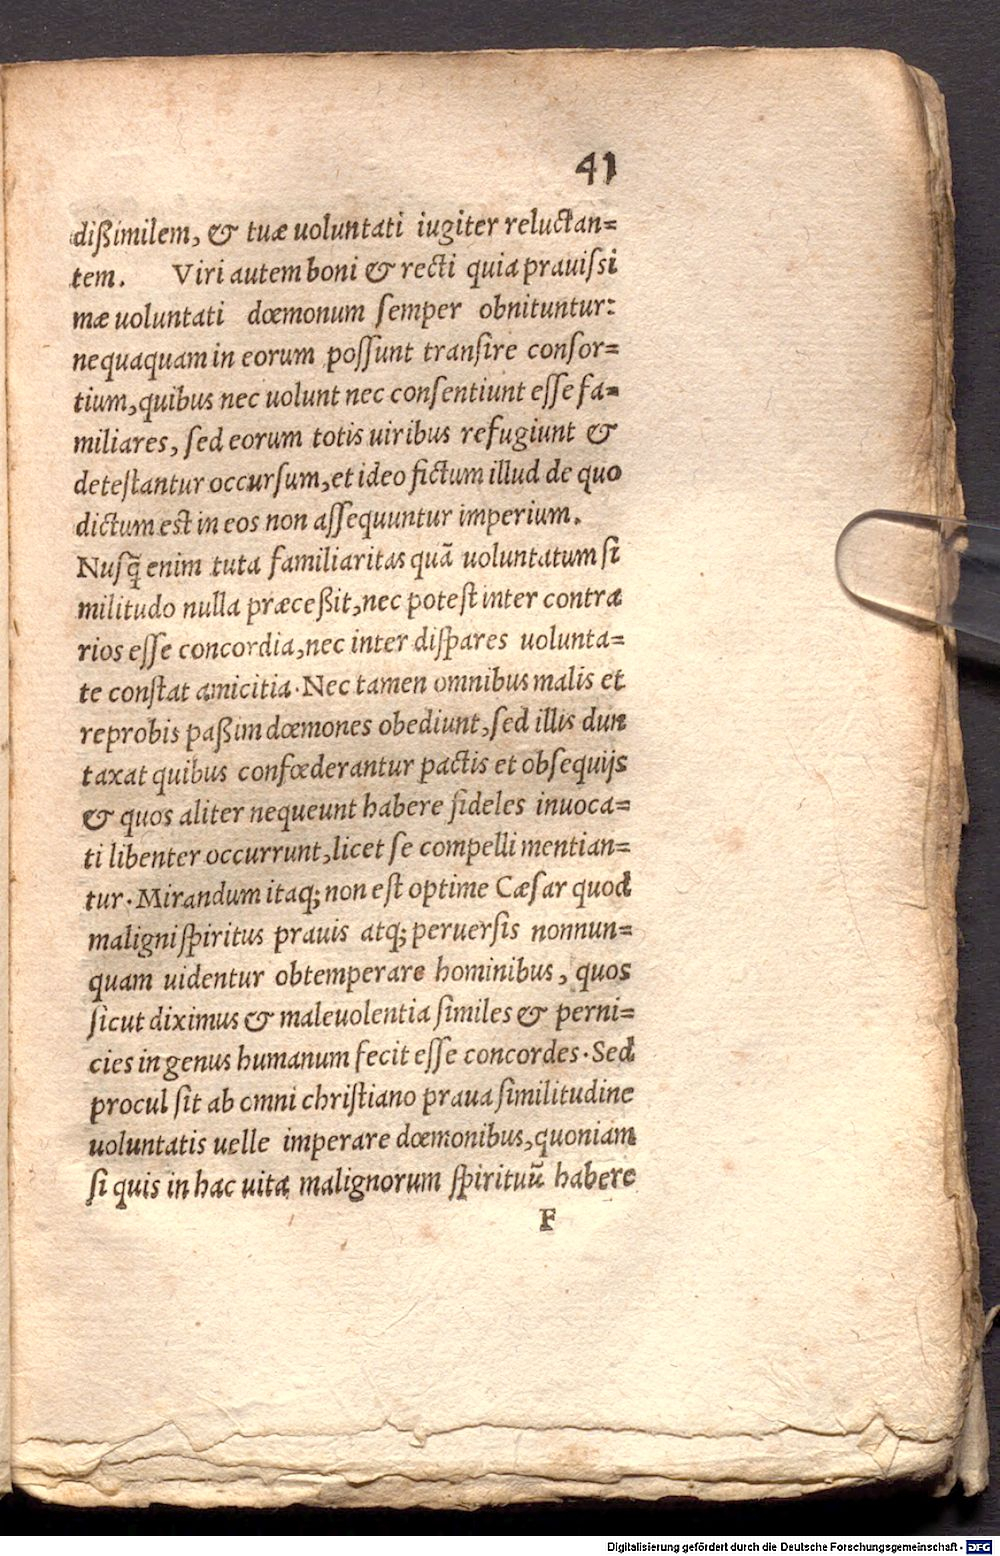 41
dißimilem, & tuæ uoluntati iugiter reluctan=
tem. Viri autem boni & recti quia prauissi
mæ uoluntati dœmonum semper obnituntur:
nequaquam in eorum possunt transire consor=
tium, quibus nec uolunt nec consentiunt esse fa=
miliares, sed eorum totis uiribus refugiunt &
detestantur occursum, et ideo fictum illud de quo
dictum est in eos non assequuntur imperium.
Nusq̃ enim tuta familiaritas quã uoluntatum si
militudo nulla præceßit, nec potest inter contra
rios esse concordia, nec inter dispares uolunta=
te constat amicitia. Nec tamen omnibus malis et
reprobis paßim dœmones obediunt, sed illis dun
taxat quibus confœderantur pactis et obsequijs
& quos aliter nequeunt habere fideles inuoca=
ti libenter occurrunt, licet se compelli mentian=
tur. Mirandum itaq; non est optime Cæsar quod
maligni spiritus prauis atq; peruersis nonnun=
quam uidentur obtemperare hominibus, quos
sicut diximus & maleuolentia similes & perni=
cies in genus humanum fecit esse concordes. Sed
procul sit ab omni christiano praua similitudine
uoluntatis uelle imperare dœmonibus, quoniam
si quis in hac uita malignorum spirituũ habere
F
Digitalisierung gefördert durch die Deutsche Forschungsgemeinschaft - DFG